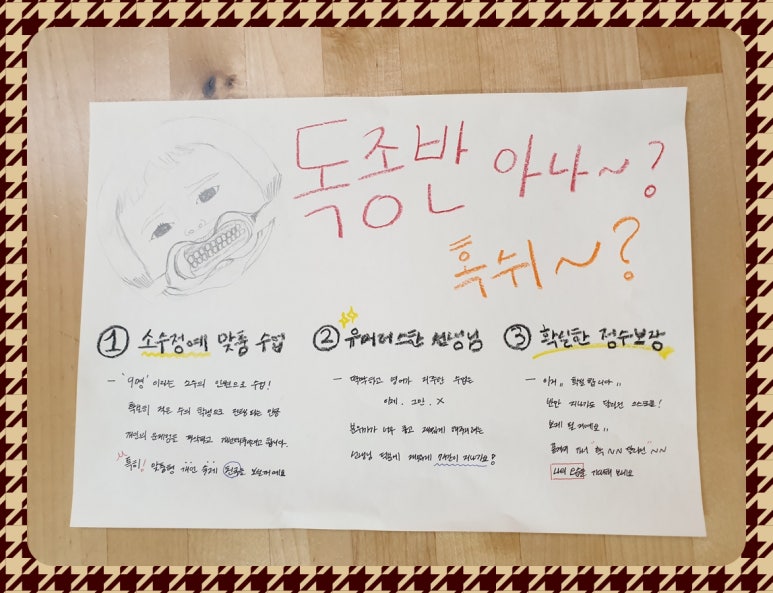 독종반 아나~?
혹쉬~?
① 소수정예 맞춤 수업
- '9명' 이라는 소수의 인원으로 수업!
적은 수의 학생으로 진행 되는 만큼
개인의 문제점을 파악하고
특히! 맞춤형 개인 숙제 전국으로
② 유머러스한 선생님
- 딱딱하고 영어가 지루한 수업은
이제. 그만. X
분위기가 너무 좋고 재밌게
선생님 덕분에 재밌게 시간이 지나가요?
③ 확실한 점수보장
- 이거,, 확실 합니다,,
반만 지나가도 달라진 스스로!
보게 될 거예요,,
나의 모습을 기대해 보세요